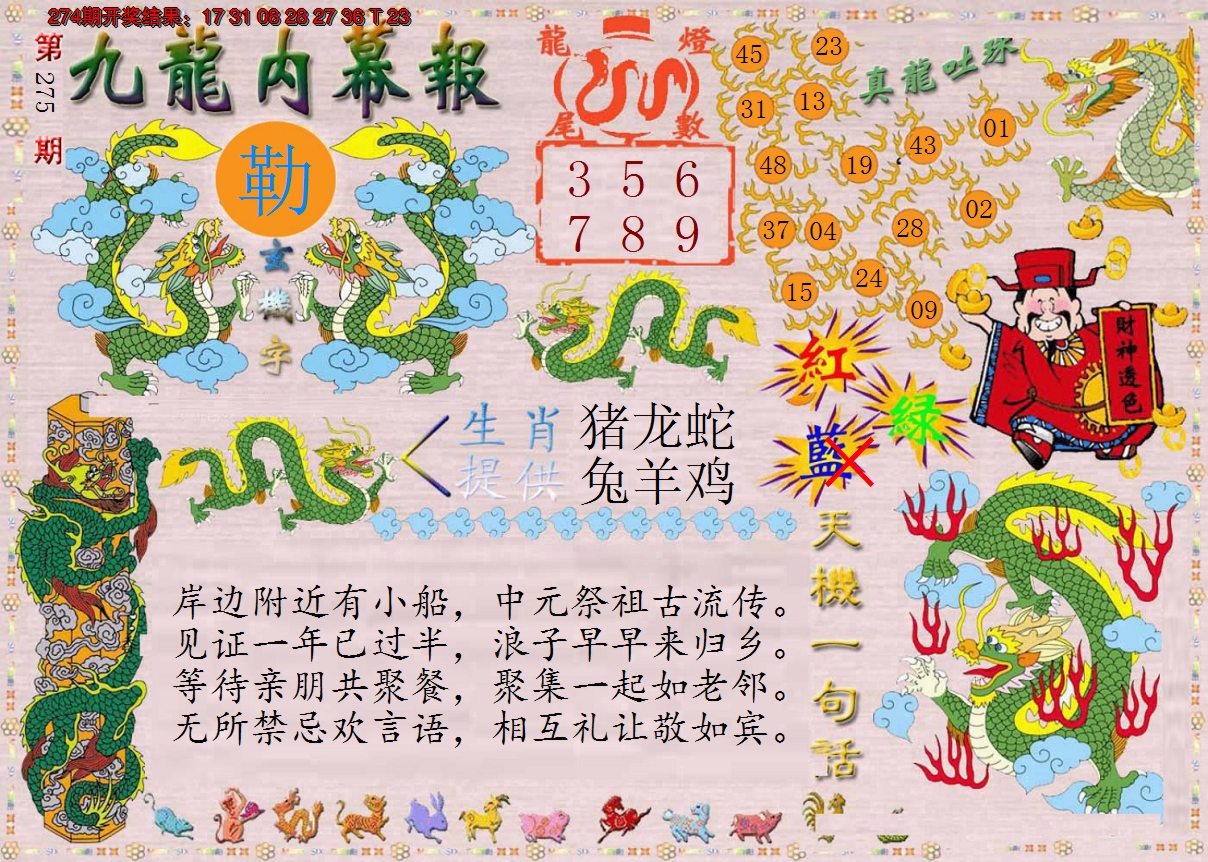 274期开奖结果：17 31 08 28 27 36 T 23
第275期
九龍内幕報
勒
玄機字
龍燈
尾數
3 5 6
7 8 9
真龍吐珠
45 23
31 13
48 19 43 01
37 04 28 02
15 24 09
財神透色
紅
綠
藍
生肖提供
猪龙蛇
兔羊鸡
天機一句話
岸边附近有小船，中元祭祖古流传。
见证一年已过半，浪子早早来归乡。
等待亲朋共聚餐，聚集一起如老邻。
无所禁忌欢言语，相互礼让敬如宾。